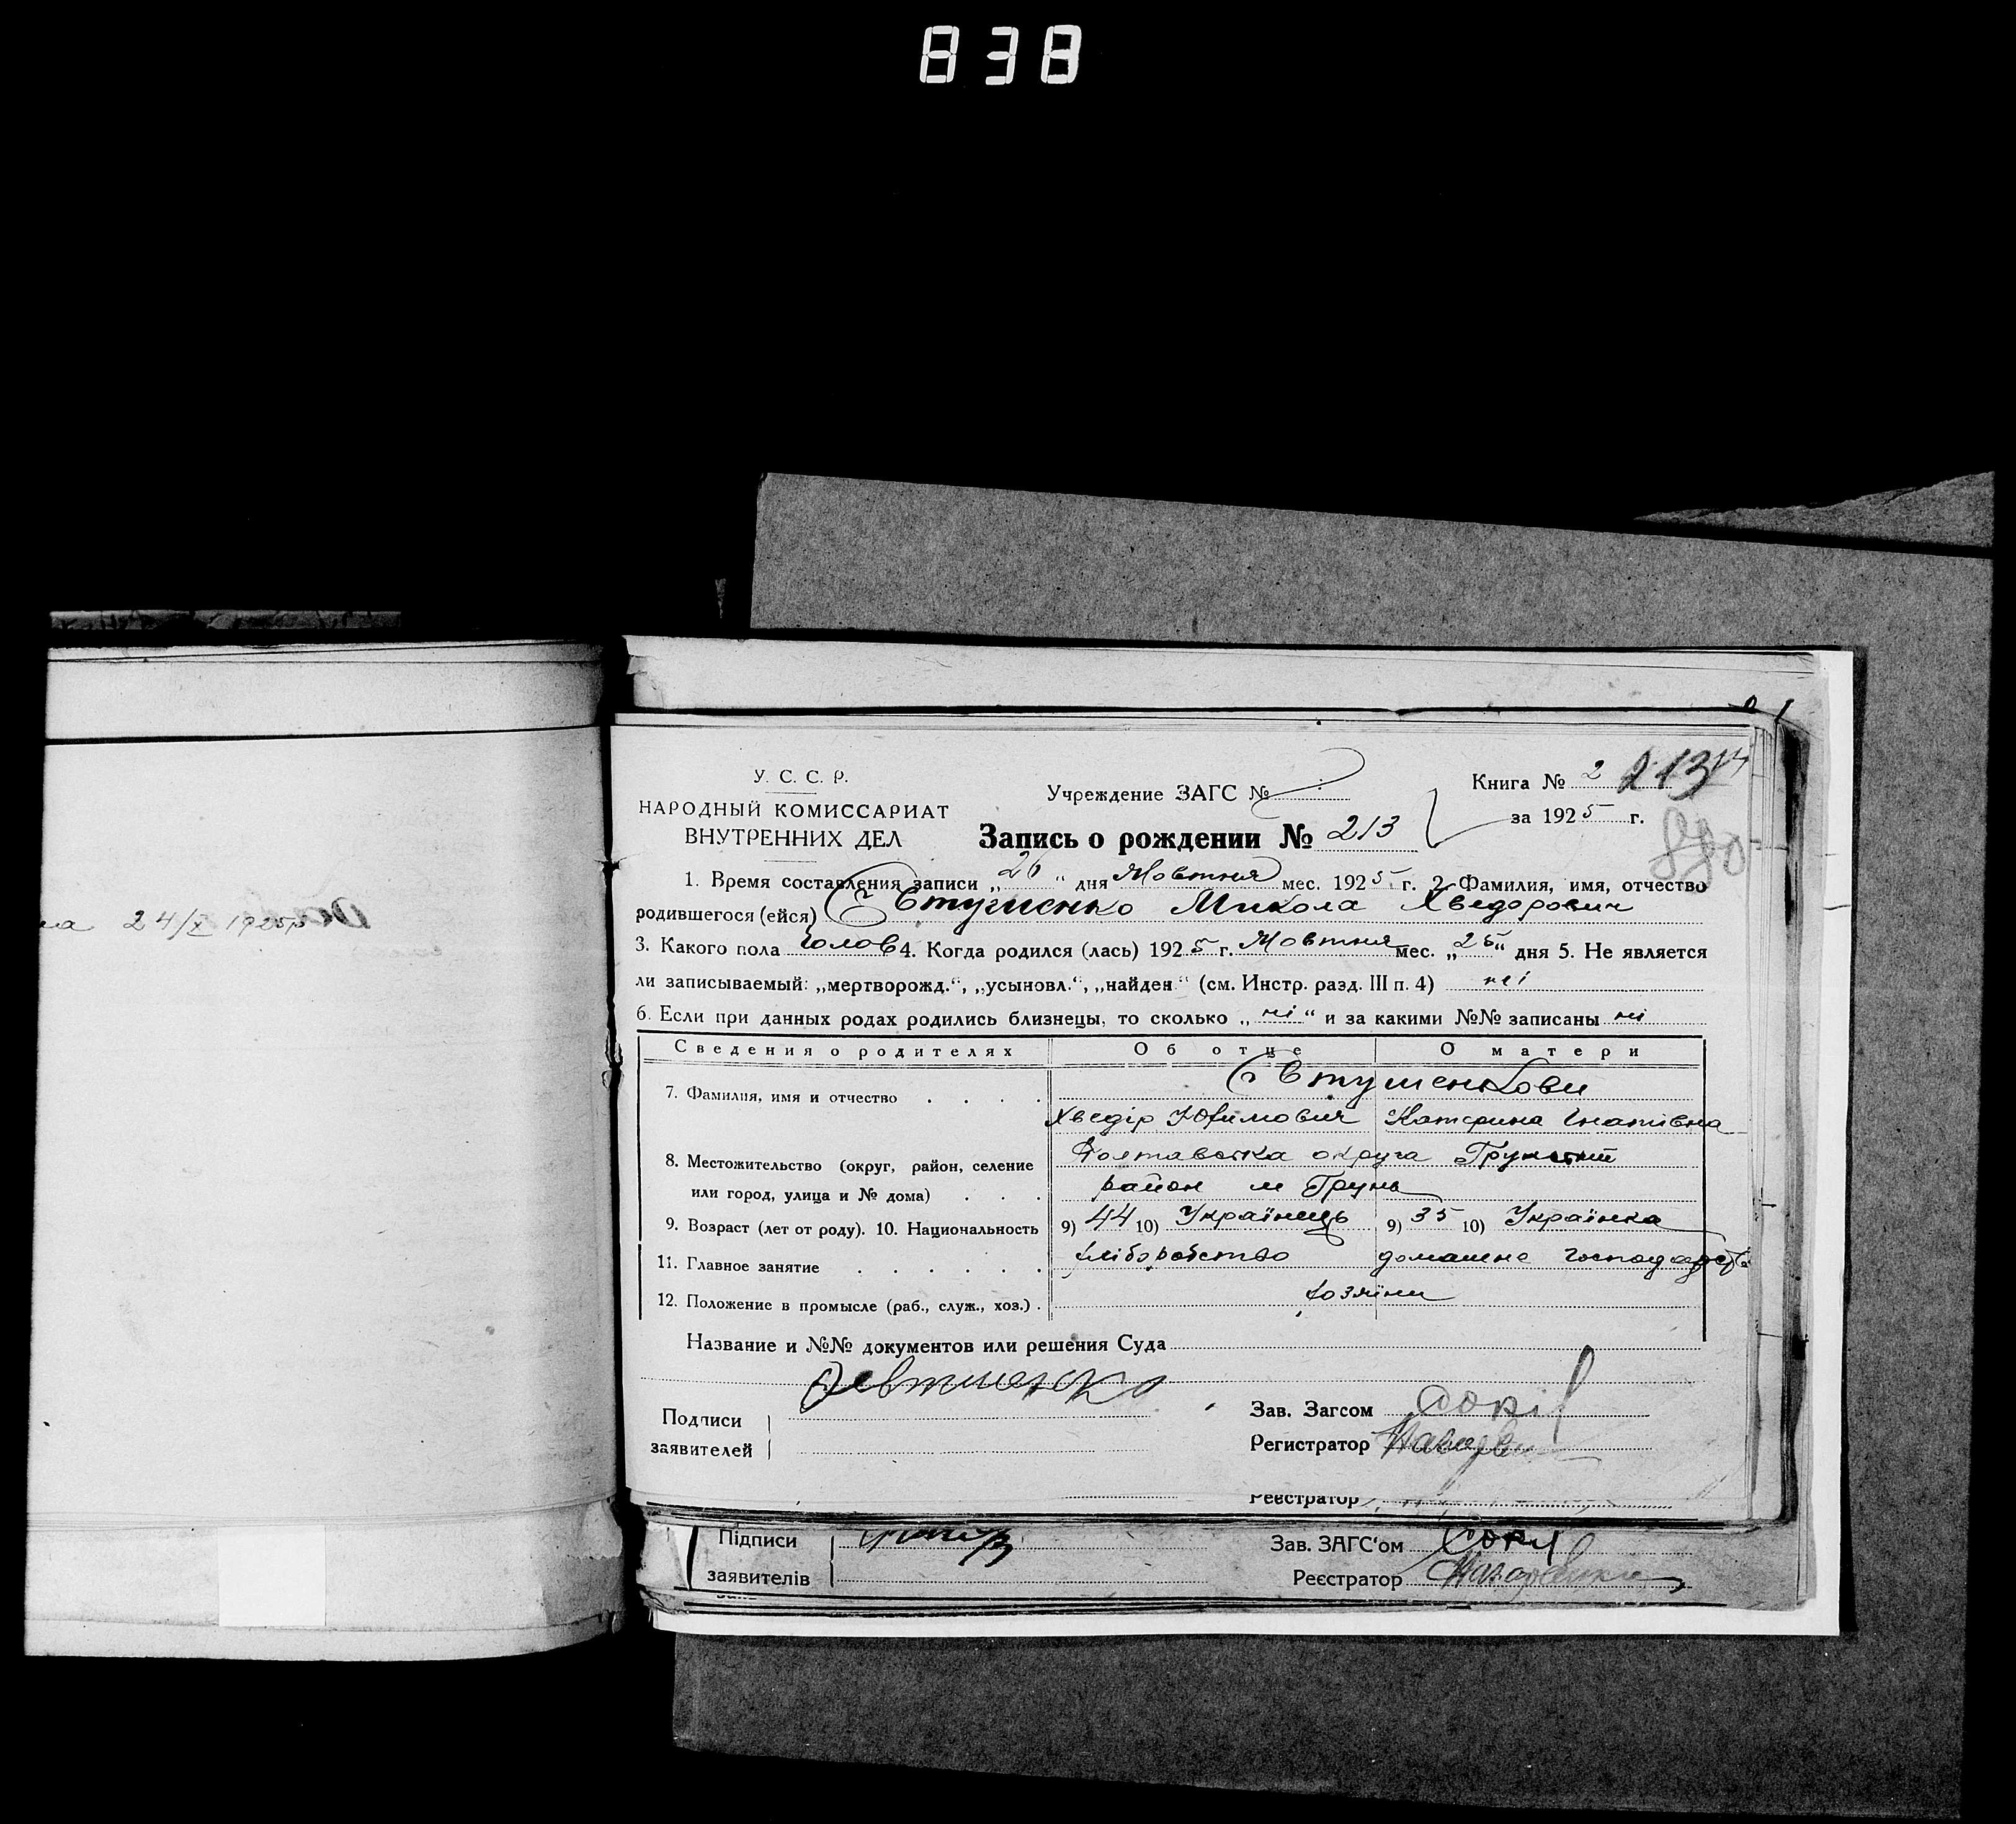 838
У. С. С. Р.
НАРОДНЫЙ КОМИССАРИАТ
ВНУТРЕННИХ ДЕЛ
Учреждение ЗАГС №
Книга № 2 213
за 1925 г.
Запись о рождении № 213
1. Время составления записи „26“ дня Жовтня мес. 1925 г. 2. Фамилия, имя, отчество
родившегося (ейся) Євтушенко Микола Хведорович
3. Какого пола Голов 4. Когда родился (лась) 1925 г. Жовтня мес. „25“ дня 5. Не является
ли записываемый: „мертворожд.“, „усыновл.“, „найден“ (см. Инстр. разд. III п. 4) ні
6. Если при данных родах родились близнецы, то сколько „ні“ и за какими №№ записаны ні
Сведения о родителях Об отце О матери
7. Фамилия, имя и отчество . . . . Євтушенкови
Хведір Юхимович Катерина Гнатівна
8. Местожительство (округ, район, селение Полтавська округа Грунський
или город, улица и № дома) . . . район м Грунь
9. Возраст (лет от роду). 10. Национальность 9) 44 10) Українець 9) 35 10) Українка
11. Главное занятие . . . . . . хліборобство домашне господарств
12. Положение в промысле (раб., служ., хоз.) . хозяїни
Название и №№ документов или решения Суда
Подписи
заявителей
Зав. Загсом
Регистратор
Реєстратор
Підписи
заявителів
Зав. ЗАГС'ом
Реєстратор
24/X 1925р